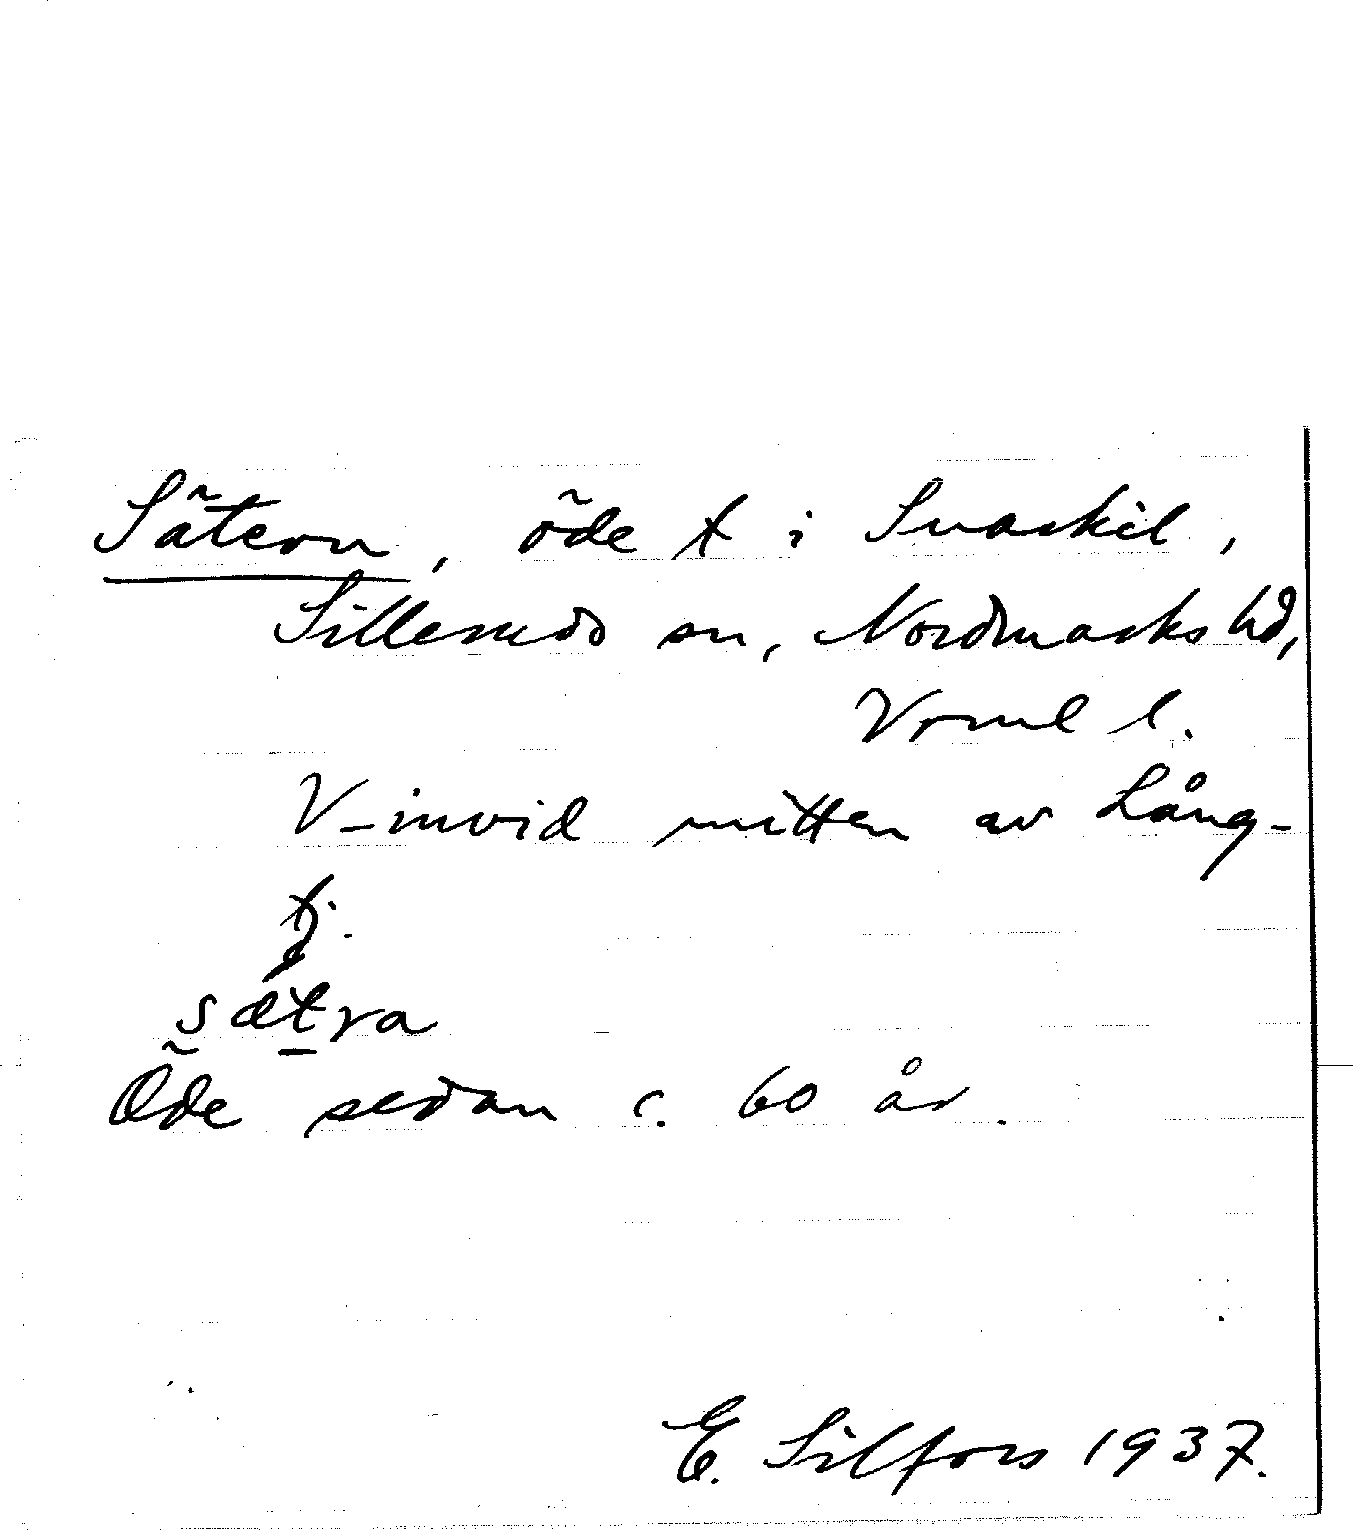 Sätern, öde t i Svarkil,
Silleruds sn, Nordmarks hd,
Vrml l.
V-invid mitten av Lång-
tj.
sætra
Öde sedan c. 60 år.
E. Silfors 1937.